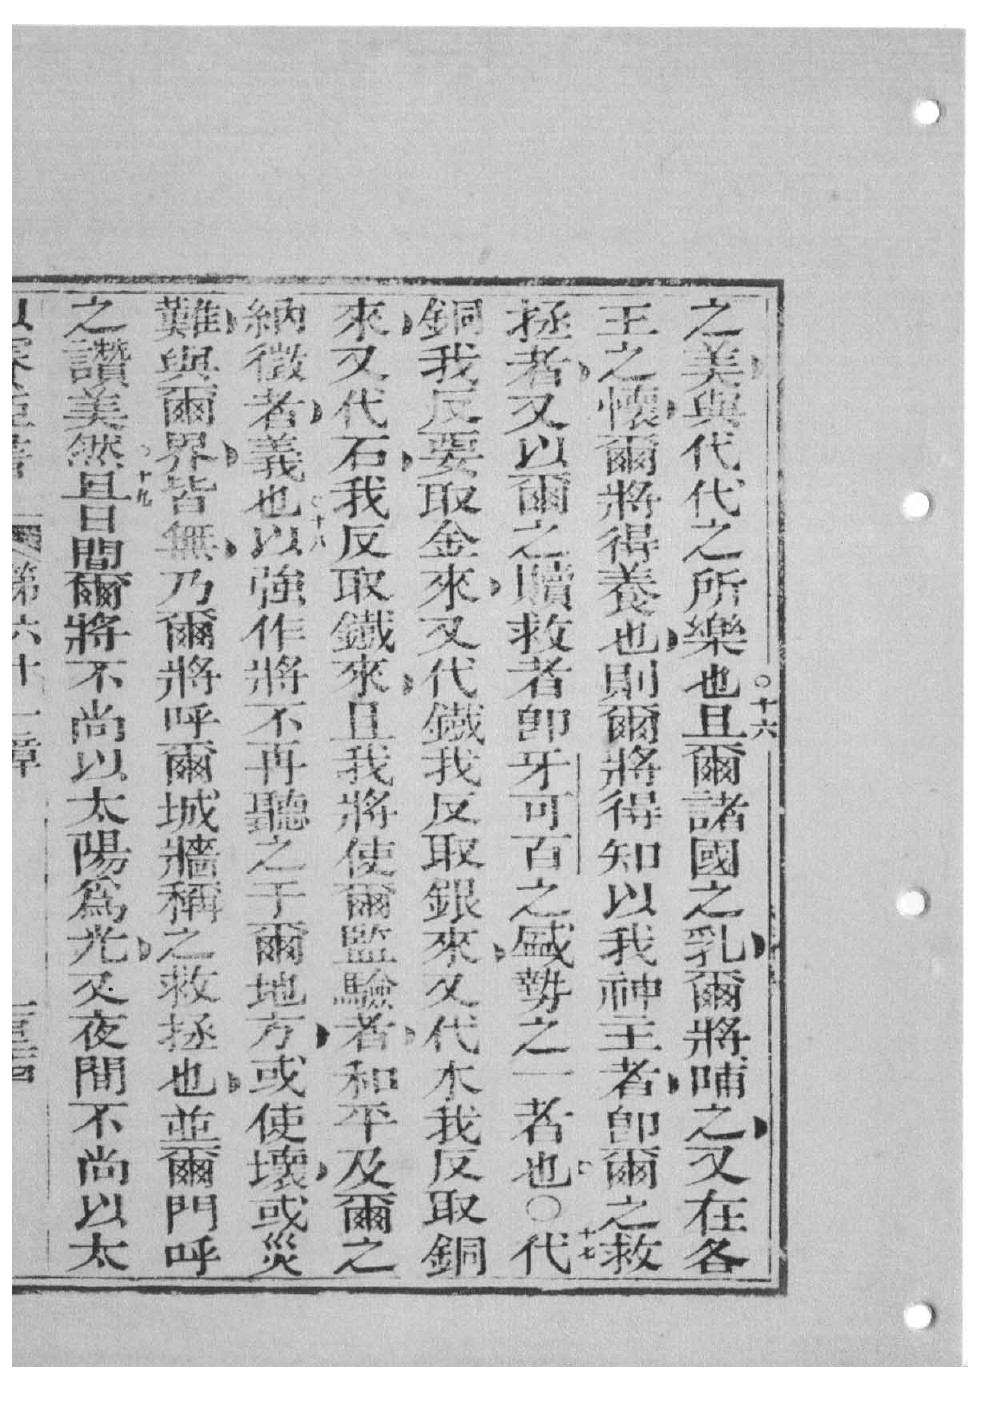 之美與代代之所樂也○十六且爾諸國之乳爾將哺之又在各
王之懷爾將得養也則爾將得知以我神主者卽爾之救
拯者又以爾之贖救者卽牙可百之盛勢之一者也○十七代
銅我反要取金來又代鐵我反取銀來又代木我反取銅
來又代石我反取鐵來且我將使爾監驗者和平及爾之
納徵者義也○十八以強作將不再聽之于爾地方或使壞或災
難與爾界皆無乃爾將呼爾城牆稱之救拯也並爾門呼
之讚美然○十九且日間爾將不尚以太陽爲光又夜間不尚以太
第六十章